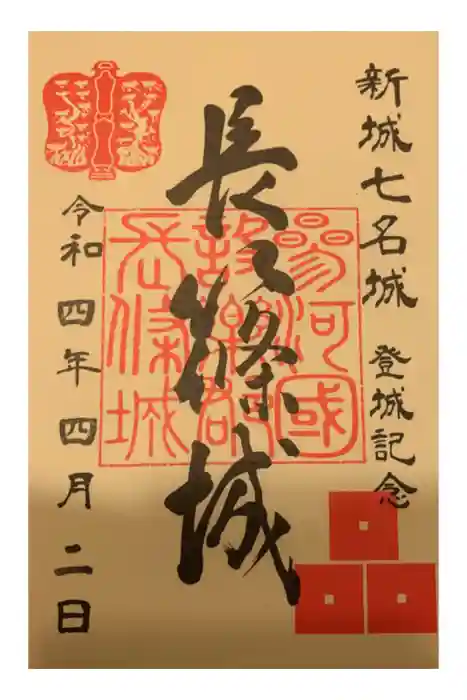 新城七名城 登城記念
長篠城
參河國
設樂郡
長篠城
令和四年四月二日